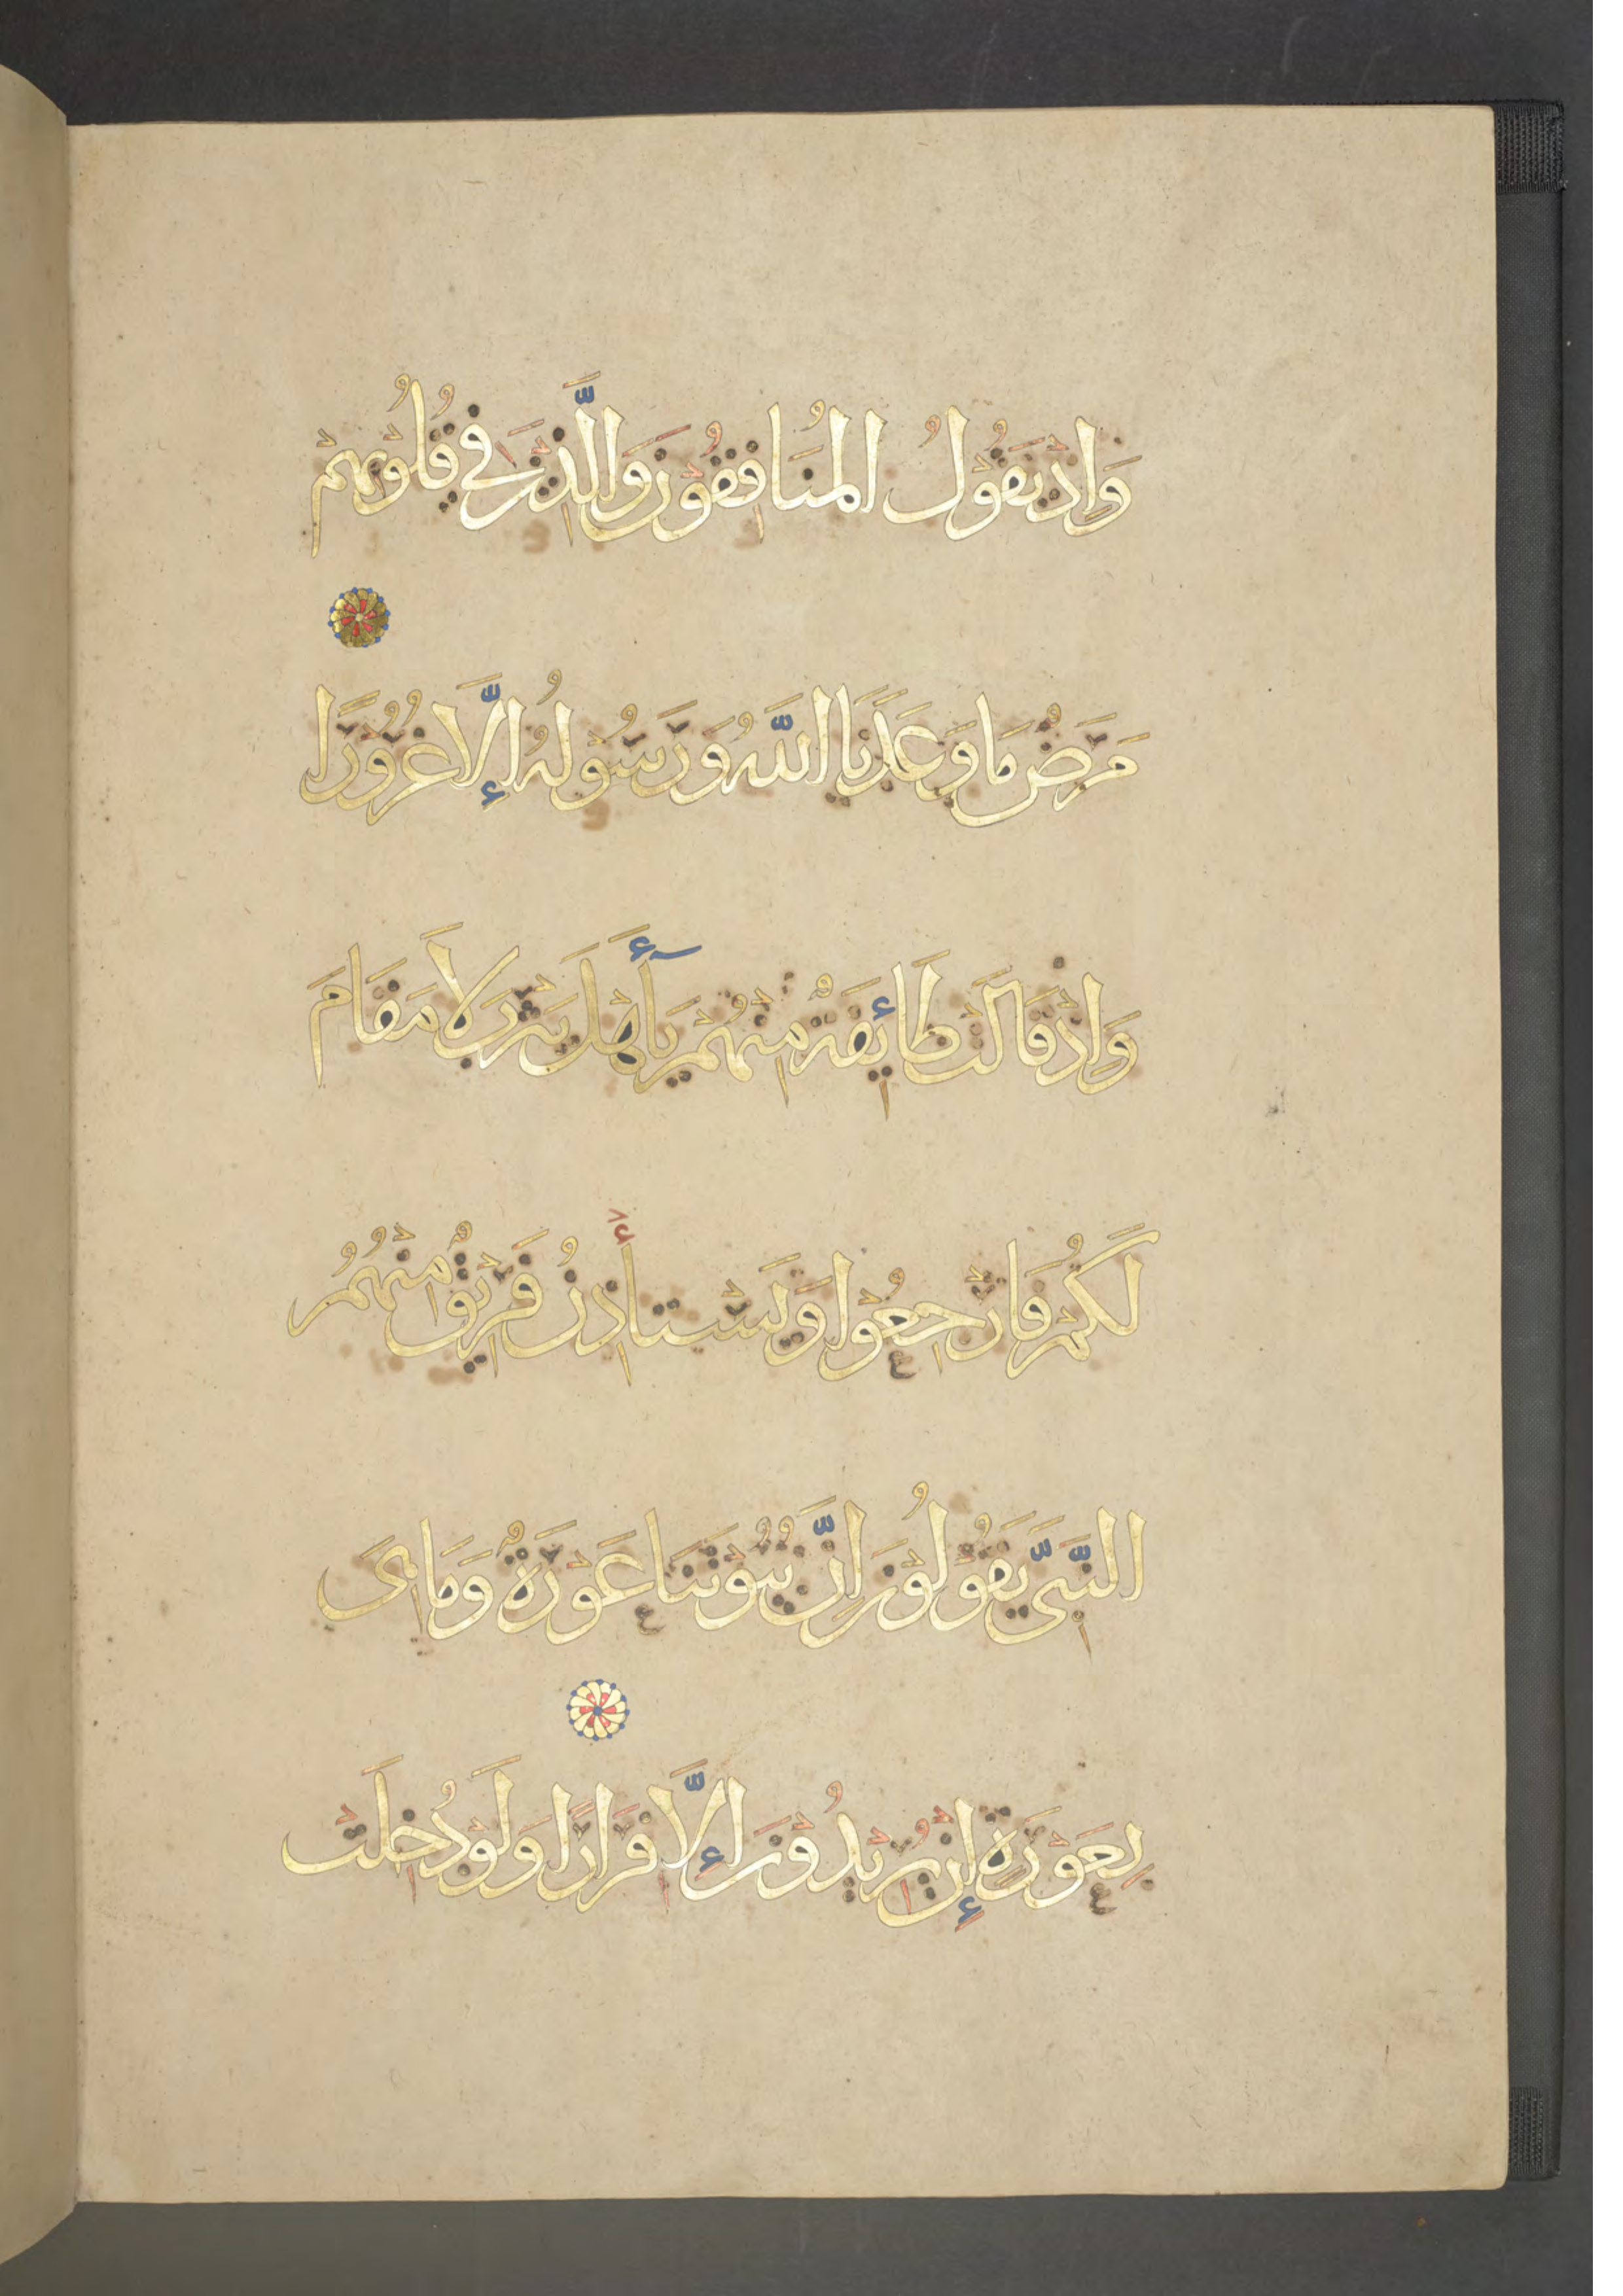 وَاِذْ يَقُوْلُ الْمُنَافِقُوْنَ وَالَّذِيْنَ فِي قُلُوْبِهِمْ
مَرَضٌ مَا وَعَدَنَا اللّٰهُ وَرَسُوْلُهُ إِلَّا غُرُوْرًا
وَاِذْ قَالَتْ طَائِفَةٌ مِنْهُمْ يَأَهْلَ يَثْرِبَ لَا مَقَامَ
لَكُمْ فَارْجِعُوْا وَيَسْتَأْذِنُ فَرِيْقٌ مِنْهُمُ
النَّبِيَّ يَقُوْلُوْنَ اِنَّ بُيُوْتَنَا عَوْرَةٌ وَمَا هِىَ
بِعَوْرَةٍ إِنْ يُرِيْدُوْنَ إِلَّا فِرَارًا وَلَوْ دُخِلَتْ